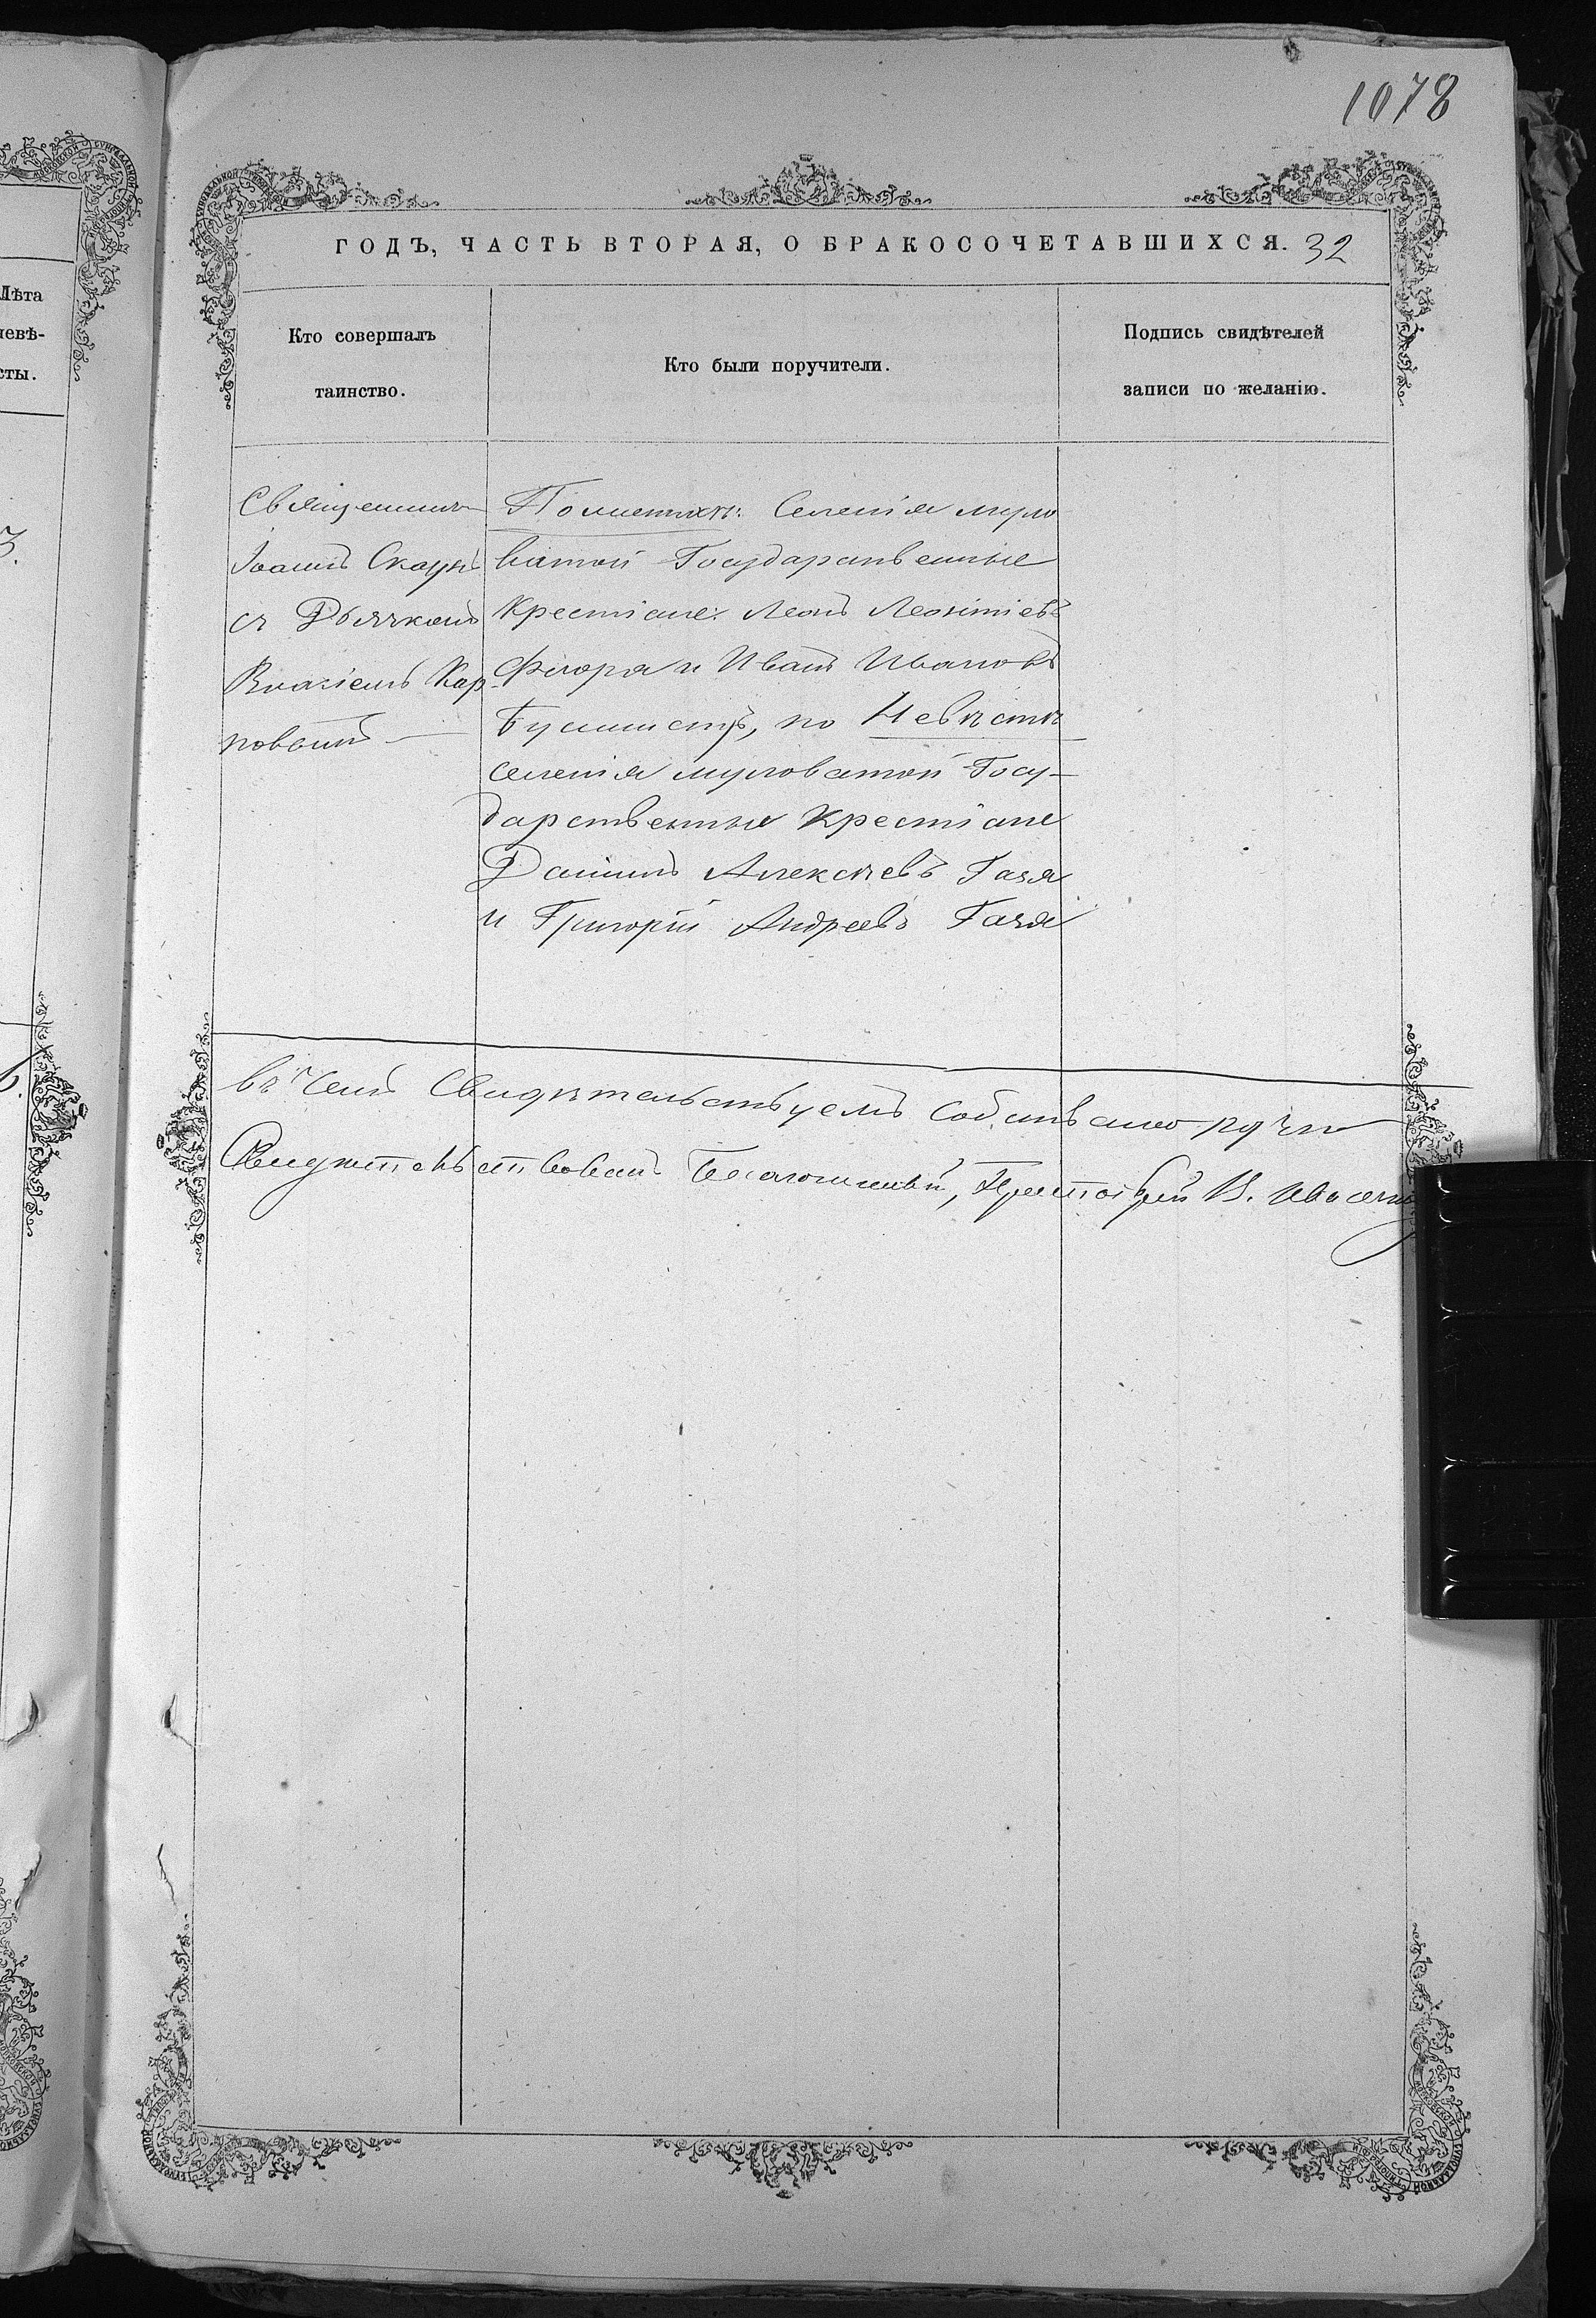 1078
ГОДЪ, ЧАСТЬ ВТОРАЯ, О БРАКОСОЧЕТАВШИХСЯ. 32
Лѣта
невѣ-
сты.
Кто совершалъ
таинство.
Кто были поручители.
Подпись свидѣтелей
записи по желанію.
3.
Священникъ
Іоаннъ Скаунъ
съ Дьячкомъ
Власіемъ Кар-
повымъ
По женихѣ: Селенія Муло
ватой Государственные
Крестіане: Леонъ Леонтіевъ
Фигора и Иванъ Ивановъ
по Невѣстѣ
селенія Муловатой Госу-
дарственные Крестіане
Даніилъ Алексѣевъ Газя
и Григорій Андреевъ Газя
въ чемъ Свидѣтельствуемъ собственноручно
Свидѣтельствовалъ Благочинный, Протоіерей В.